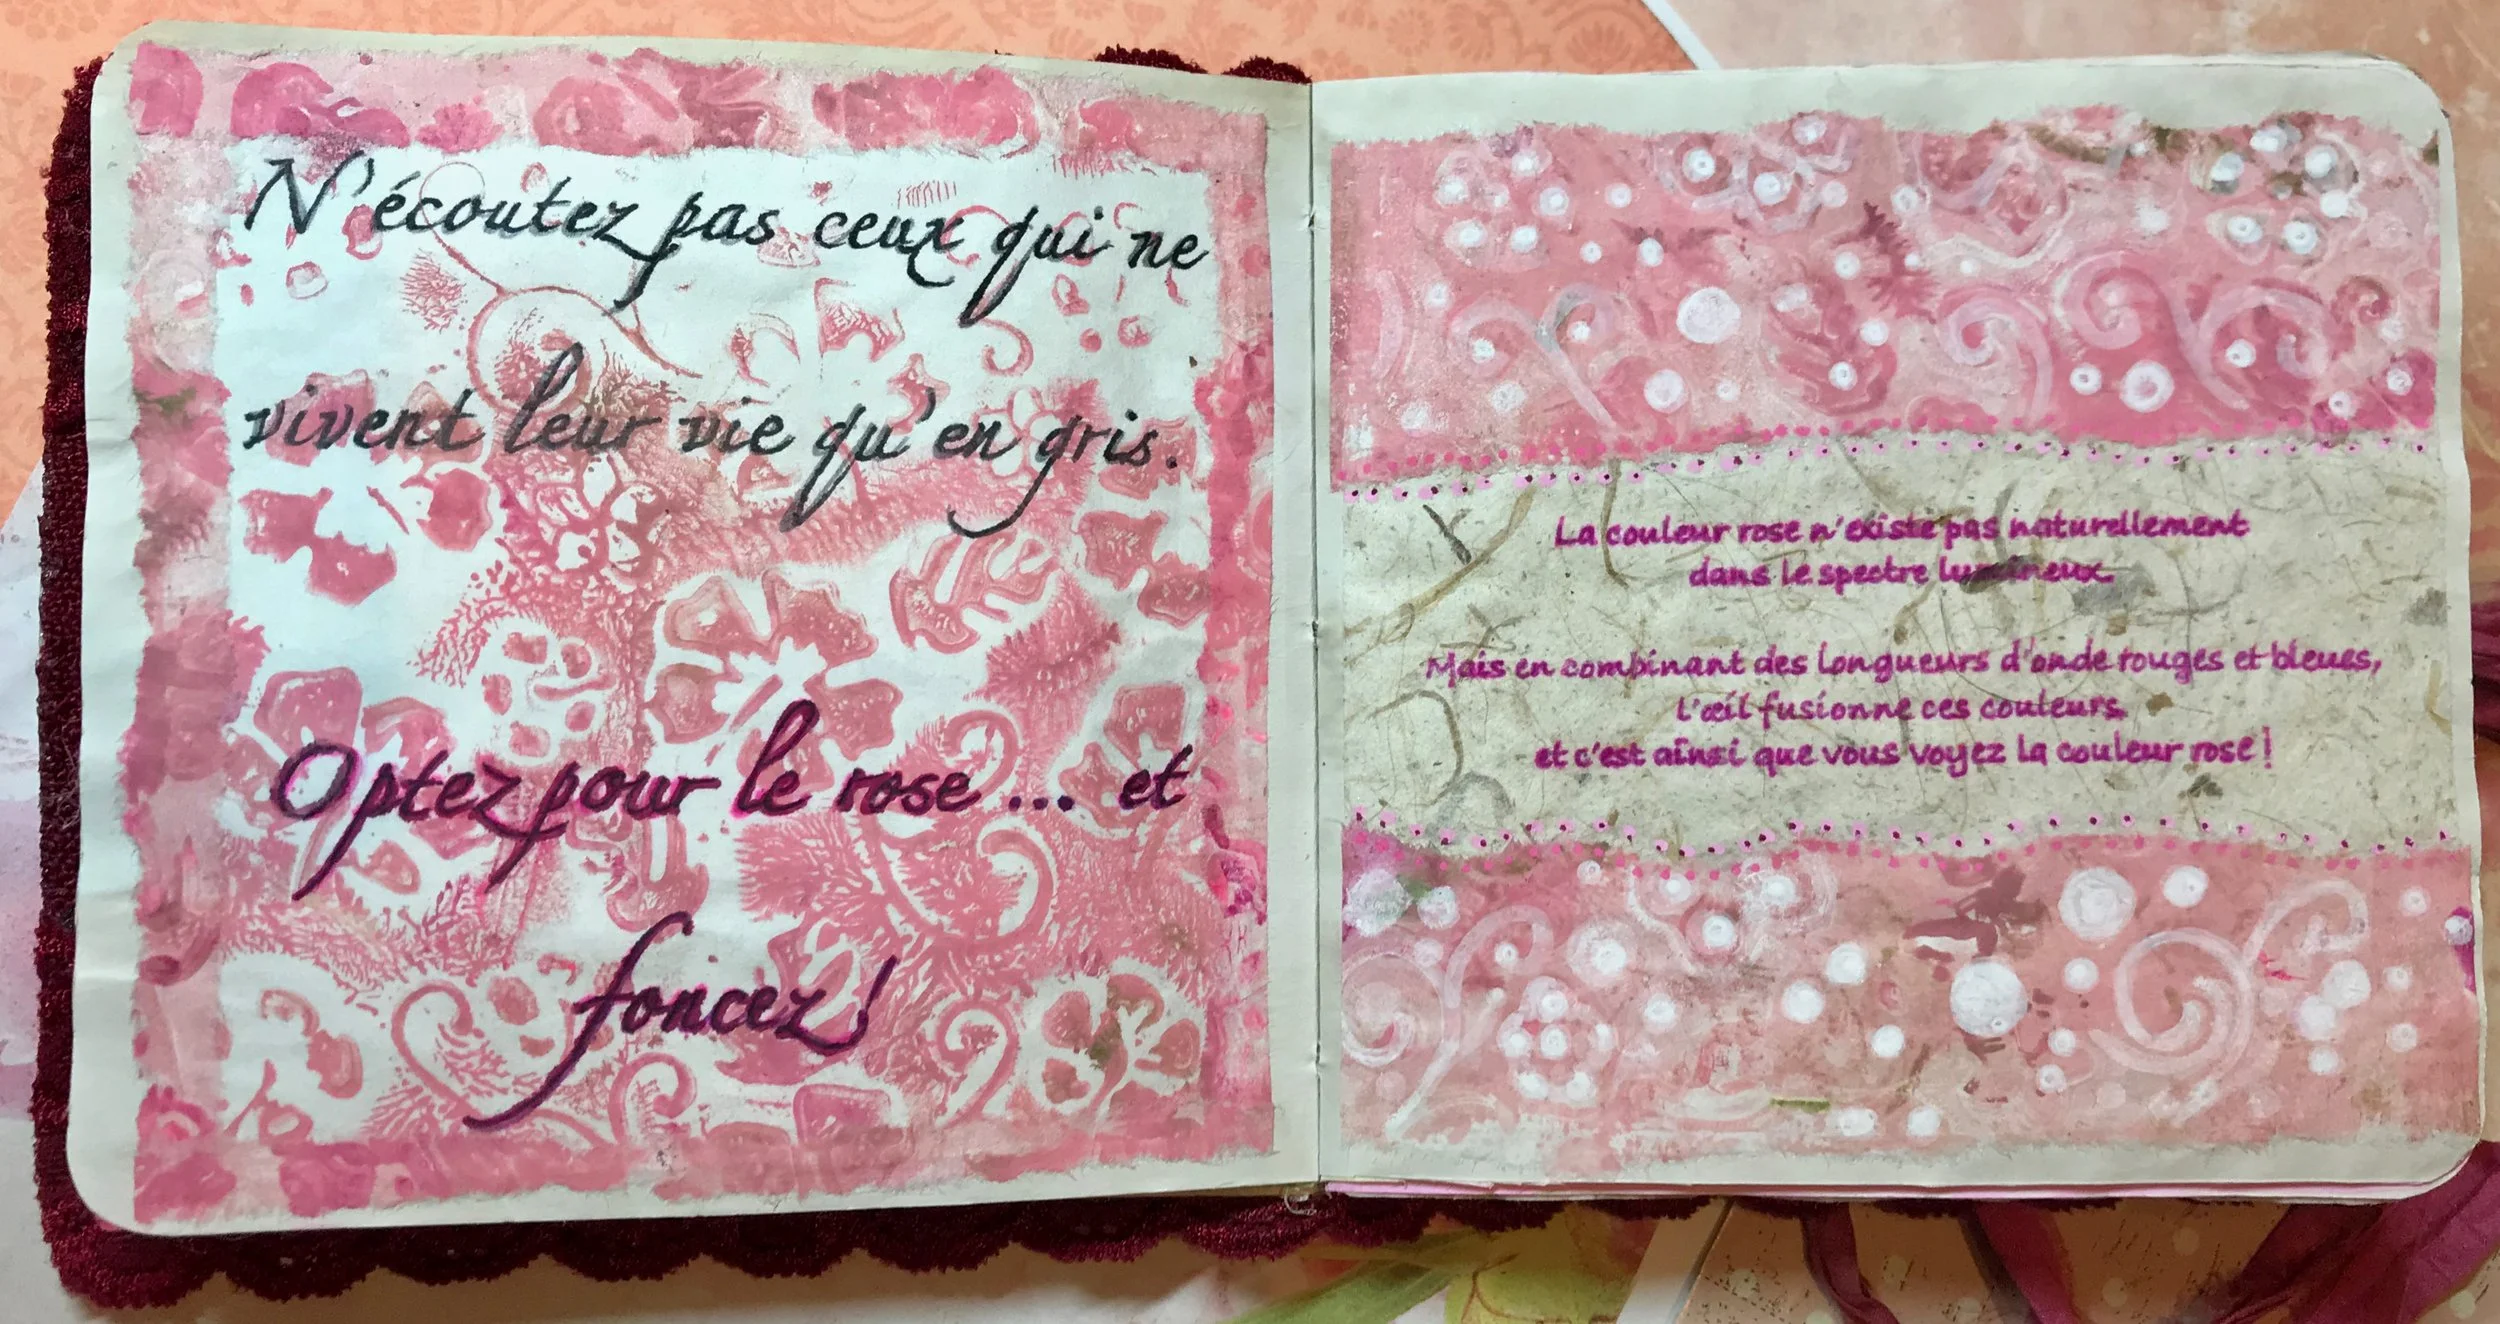 N'écoutez pas ceux qui ne
vivent leur vie qu'en gris.
Optez pour le rose ... et
foncez!
La couleur rose n'existe pas naturellement
dans le spectre lumineux.
Mais en combinant des longueurs d'onde rouges et bleues,
l'œil fusionne ces couleurs
et c'est ainsi que vous voyez la couleur rose!